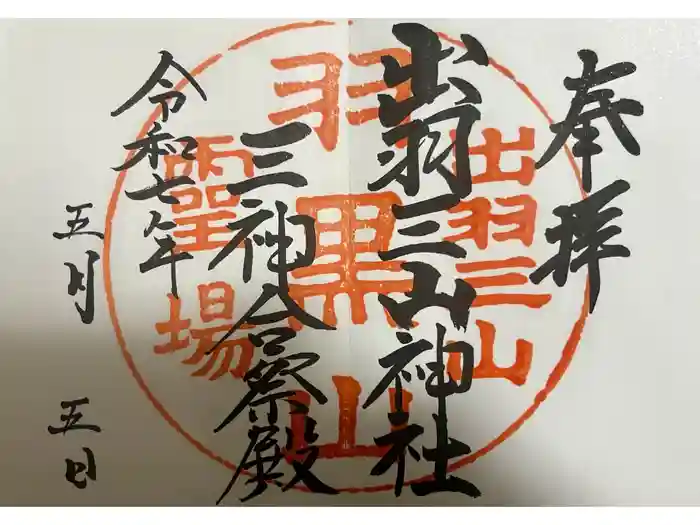 奉拝
出羽三山神社
三神合祭殿
令和七年
五月
五日
出羽三山
羽黒山
霊場